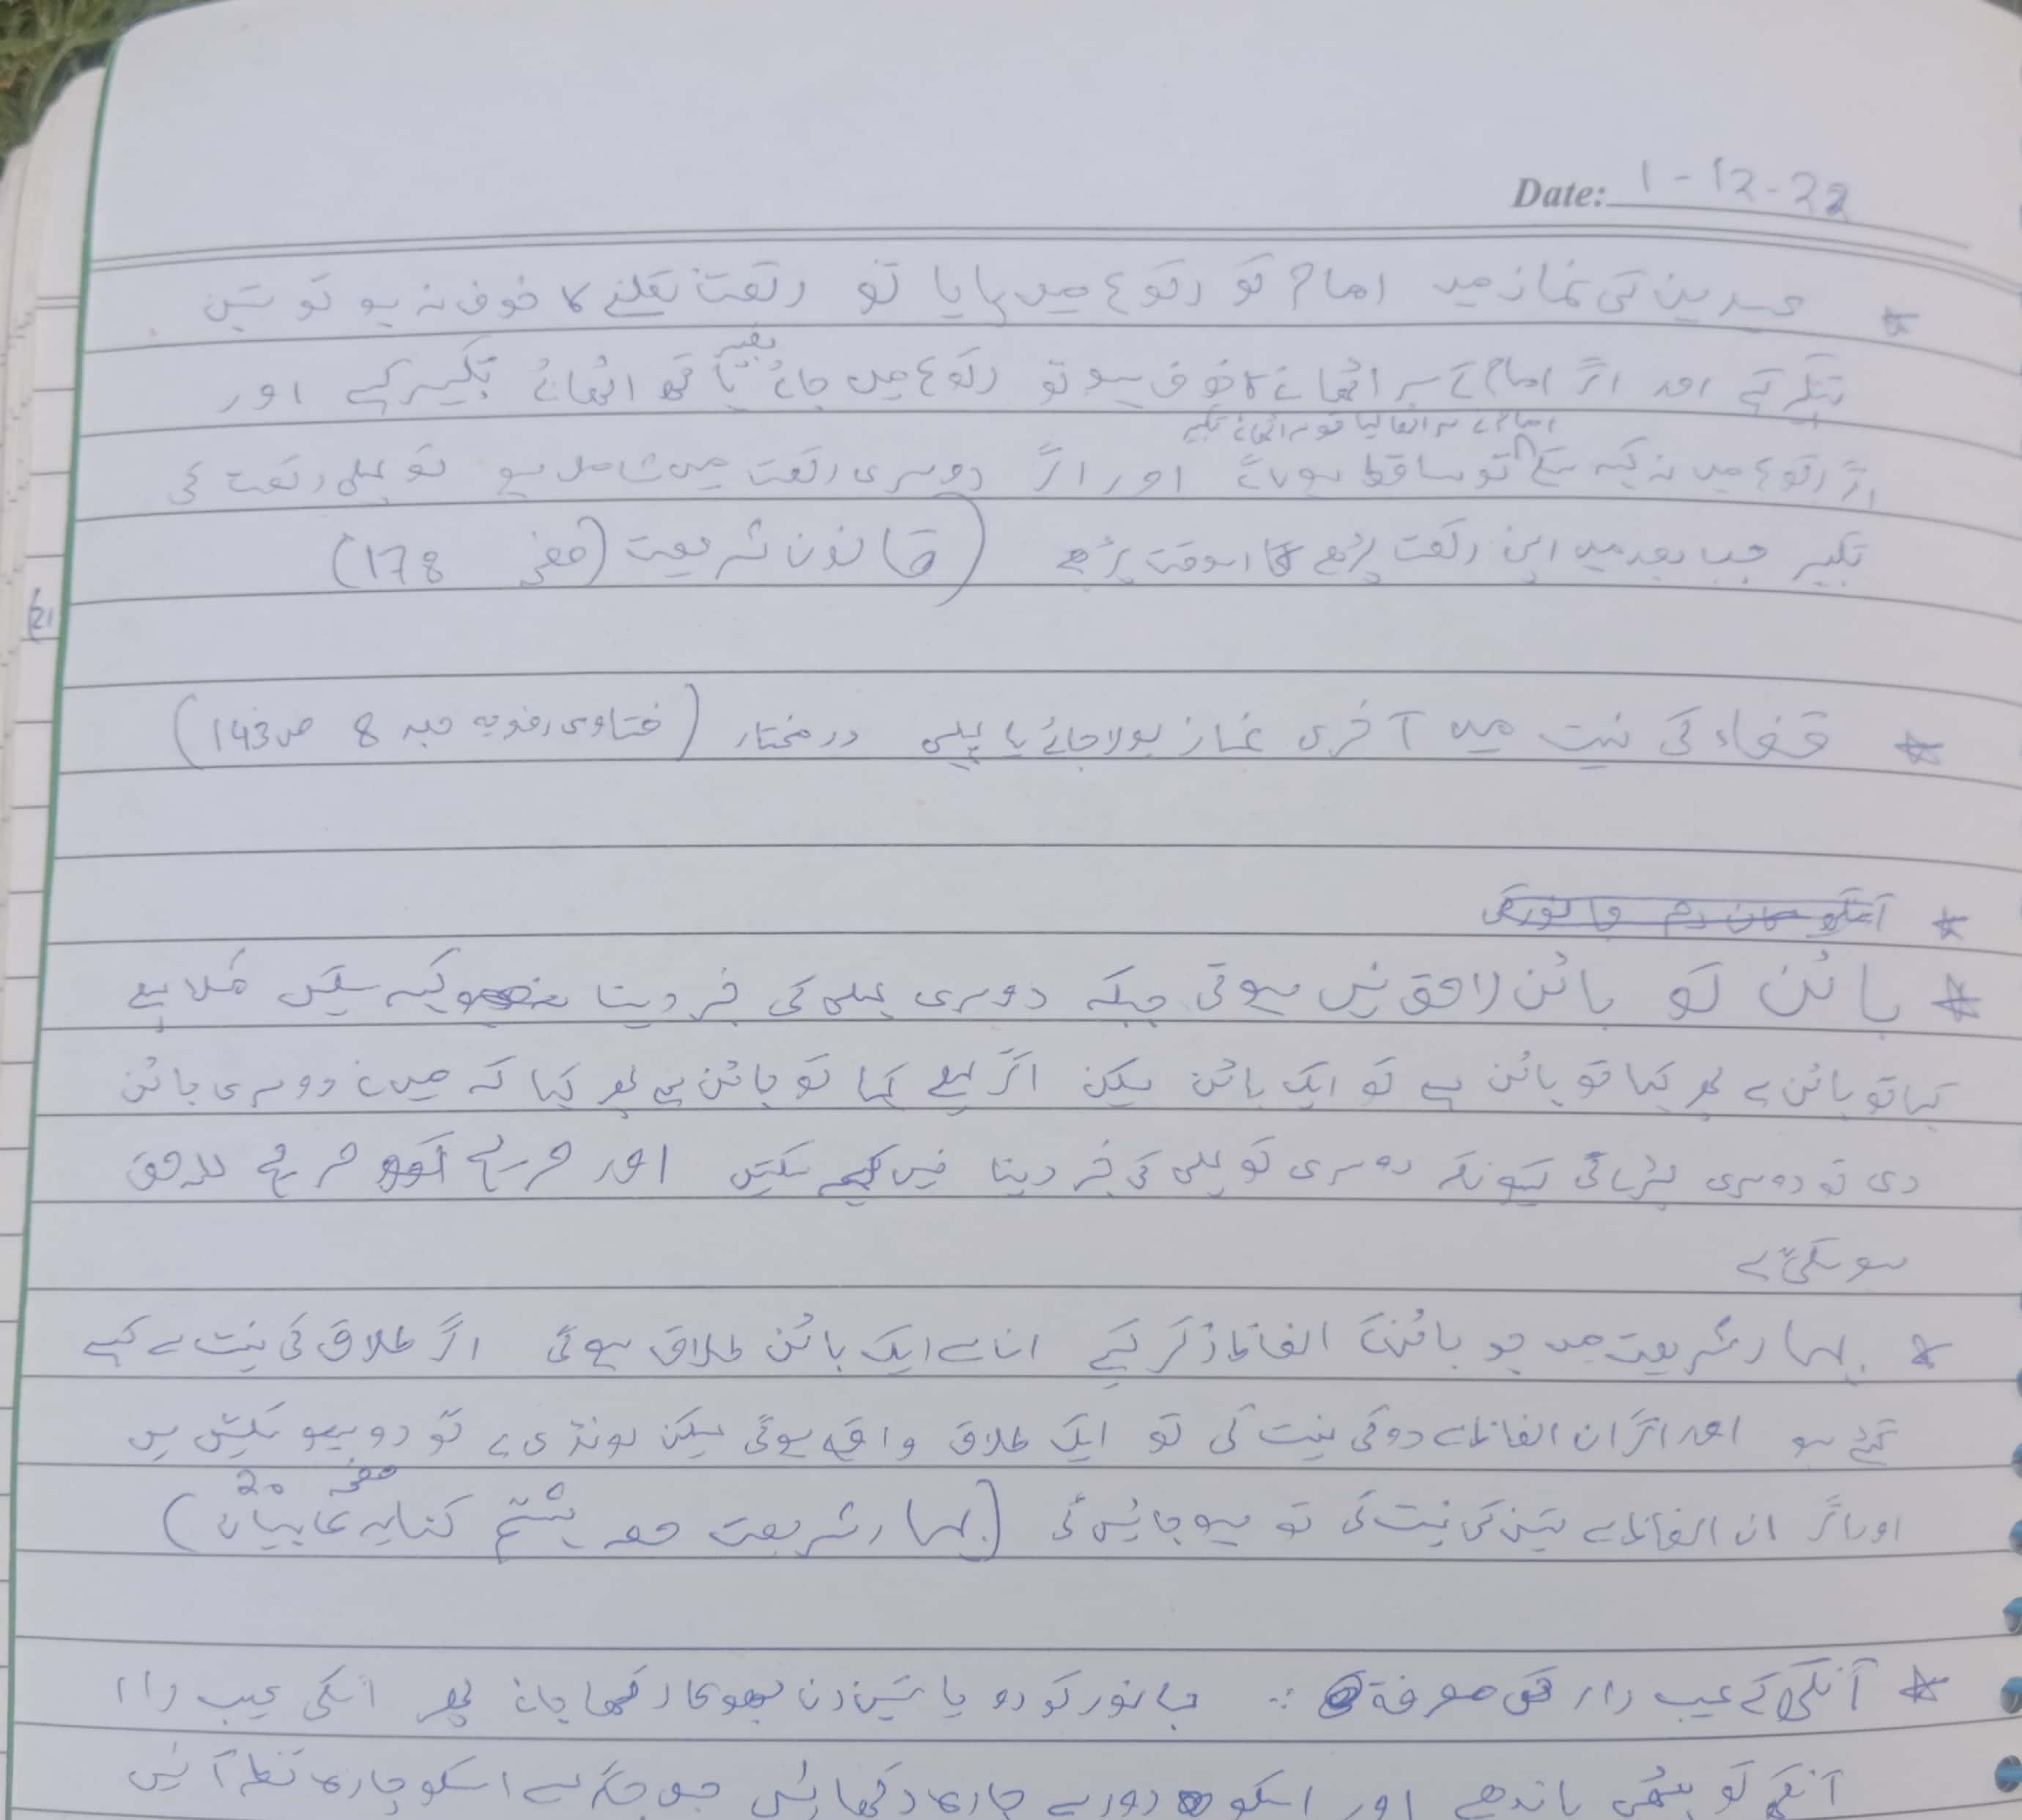 Date: 1-12-22
* عیدین کی نماز میں امام کو رکوع میں پایا تو رکعت نکلنے کا خوف نہ ہو تو تین
اور اگر امام کے سر اٹھانے کا خوف ہو تو رکوع میں جائے بغیر ہاتھ اٹھائے تکبیر کہے اور
امام نے سر اٹھا لیا تو
اگر رکوع میں نہ کہہ سکے تو ساقط ہو جائے اور اگر دوسری رکعت میں شامل ہو تو پہلی رکعت کی
تکبیر جب بعد میں اپنی رکعت پڑھے گا اسوقت پڑھے (قانون شریعت (صفحہ 178)
21
* قضاء کی نیت میں آخری نماز بولا جائے یا پہلی در مختار (فتاوی رضویہ جلد 8 ص 143)
*
* بائن کو بائن لاحق نہیں ہوتی جبکہ دوسری پہلی کی خبر دینا کہہ سکیں مثلا پہلے
کہا تو بائن ہے پھر کہا تو بائن ہے تو ایک بائن لیکن اگر پہلے کہا تو بائن ہے پھر کہا کہ میں نے دوسری بائن
دی تو دوسری پڑ جائے گی کیونکہ دوسری کو پہلی کی خبر دینا نہیں کہہ سکتے اور صریح کو صریح لاحق
ہو سکتی ہے
* بہار شریعت میں جو بائن کے الفاظ ذکر کیے ان سے ایک بائن طلاق ہو گی اگر طلاق کی نیت سے کہے
گئے ہو اور اگر ان الفاظ سے دو کی نیت کی تو ایک طلاق واقع ہو گی لیکن لونڈی ہے تو دو ہو سکتیں ہیں
اور اگر ان الفاظ سے تین کی نیت کی تو ہو جائیں گی (بہار شریعت حصہ ہشتم کنایہ کا بیان صفحہ 20)
* آنکھ کے عیب دار کی معرفة :- جانور کو دو یا تین دن بھوکا رکھا جائے پھر اسکی عیب دار
آنکھ کو پٹھی باندھے اور اسکو دور سے چارہ دکھائیں جس جگہ سے اسکو چارہ نظر آئیں